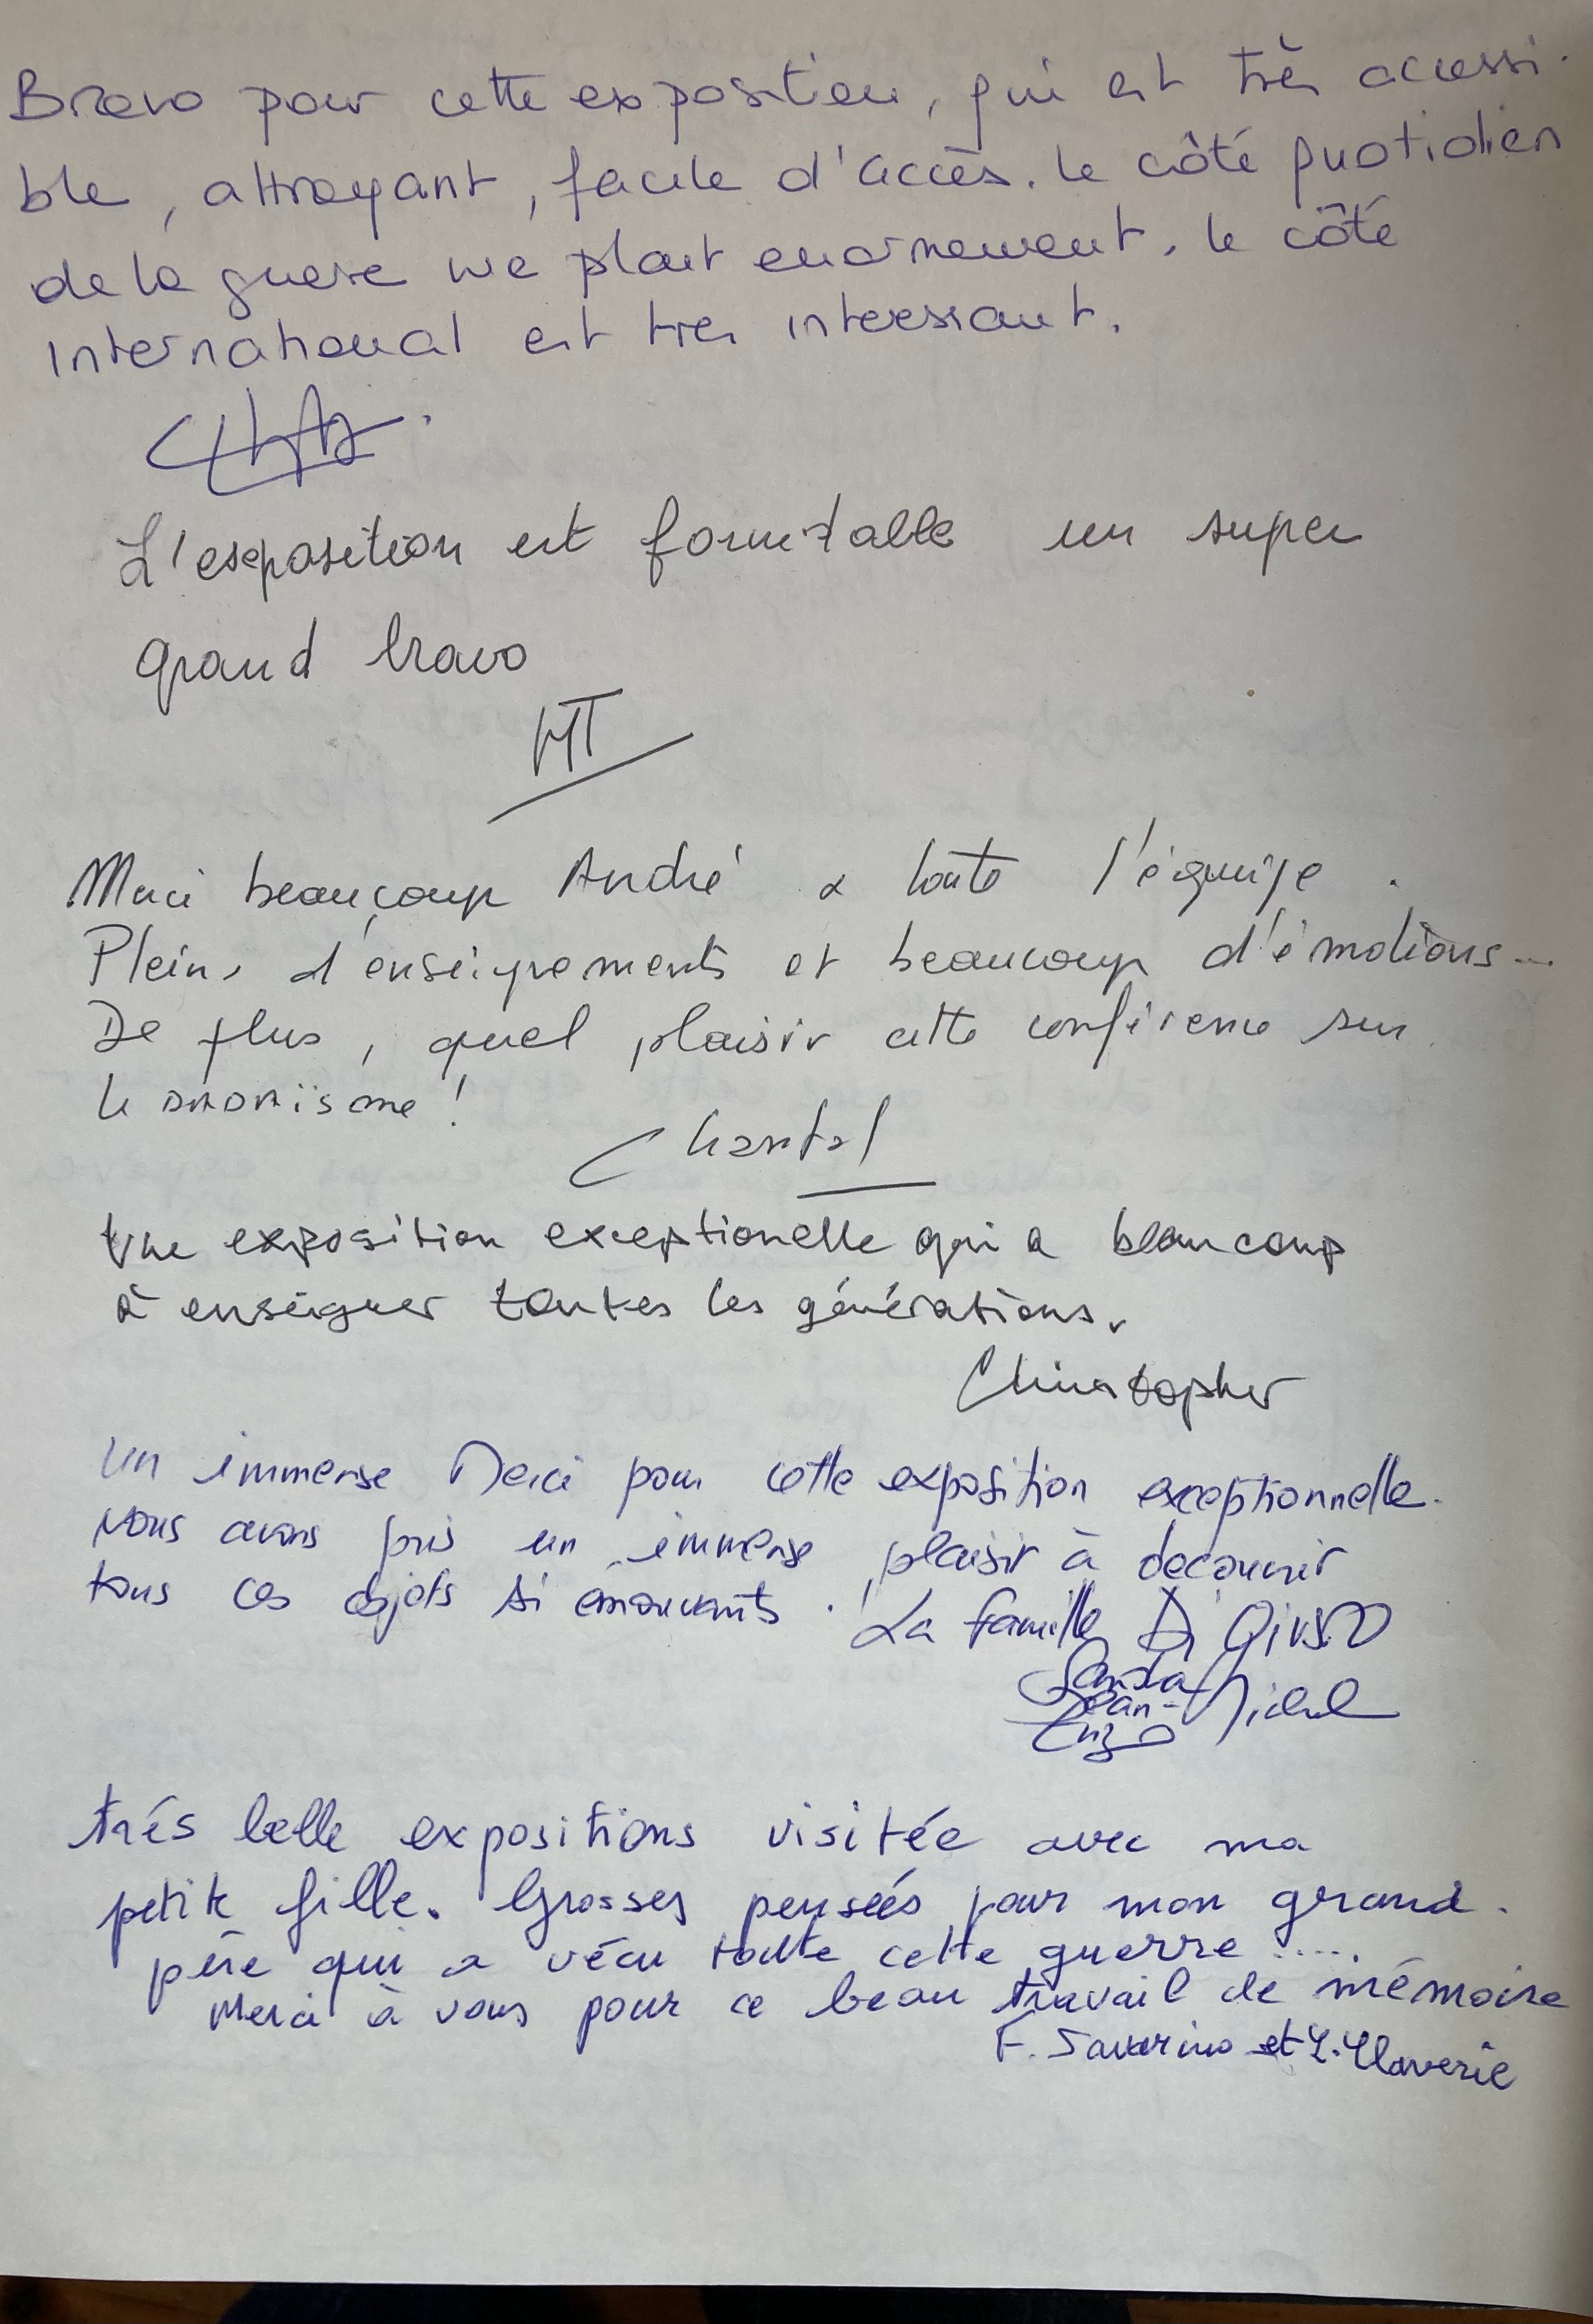 Bravo pour cette exposition, qui est très accessi-
ble, attrayant, facile d'accès. le côté quotidien
de la guere me plait enormement. le côté
International est tres interessant.
L'exposition est formitable un super
grand bravo
MT
Merci beaucoup André & toute l'équipe.
Pleins d'enseignements et beaucoup d'émotions...
De plus, quel plaisir cette conférence sur
le !
Chantal
Une exposition exceptionelle qui a beaucoup
à enseigner toutes les générations.
Christopher
Un immense Merci pour cette exposition exceptionnelle.
Nous avons pris un immense plaisir à decouvrir
tous ces objets si émouvants. La famille Di
Sandra
Jean-Michel
Enzo
trés belle expositions visitée avec ma
petite fille. Grosses pensées pour mon grand-
père qui a vécu toute cette guerre .....
Merci à vous pour ce beau travail de mémoire
F. Saverino et L. Claverie